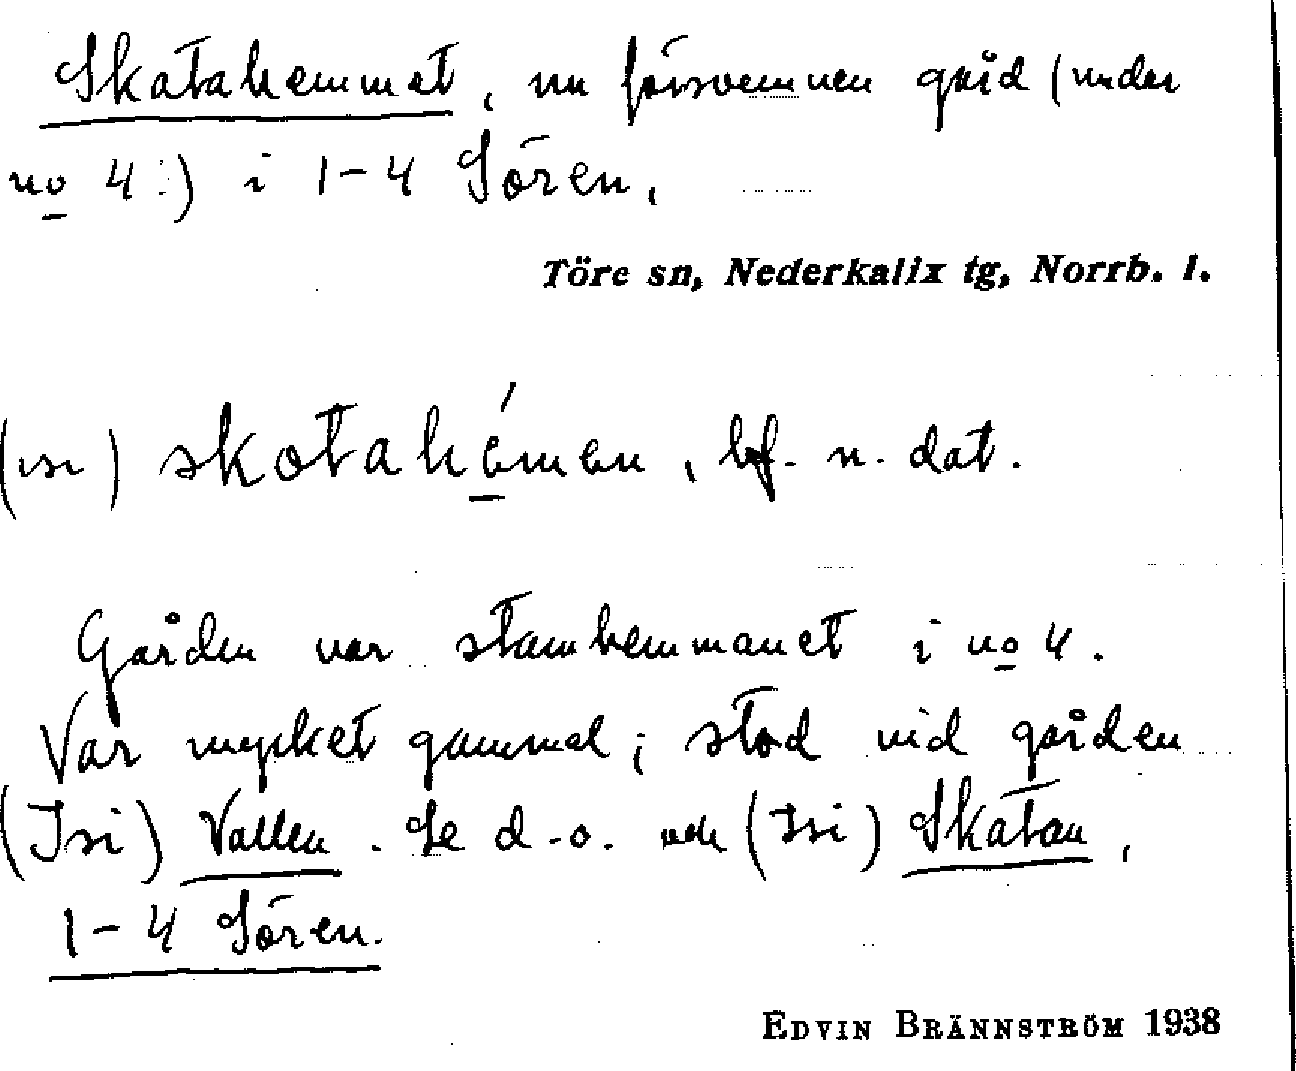 Skatahemmet, nu försvunnen gård (under
no 4:) i 1-4 Sören,
Töre sn, Nederkalix tg, Norrb. l.
(isi) skotahémen, bf. n. dat.
Gården var stamhemmanet i no 4.
Var mycket gammal; stod vid gården
(Isi) Vallen. Se d.o. och (Isi) Skatan,
1-4 Sören.
EDVIN BRÄNNSTRÖM 1938